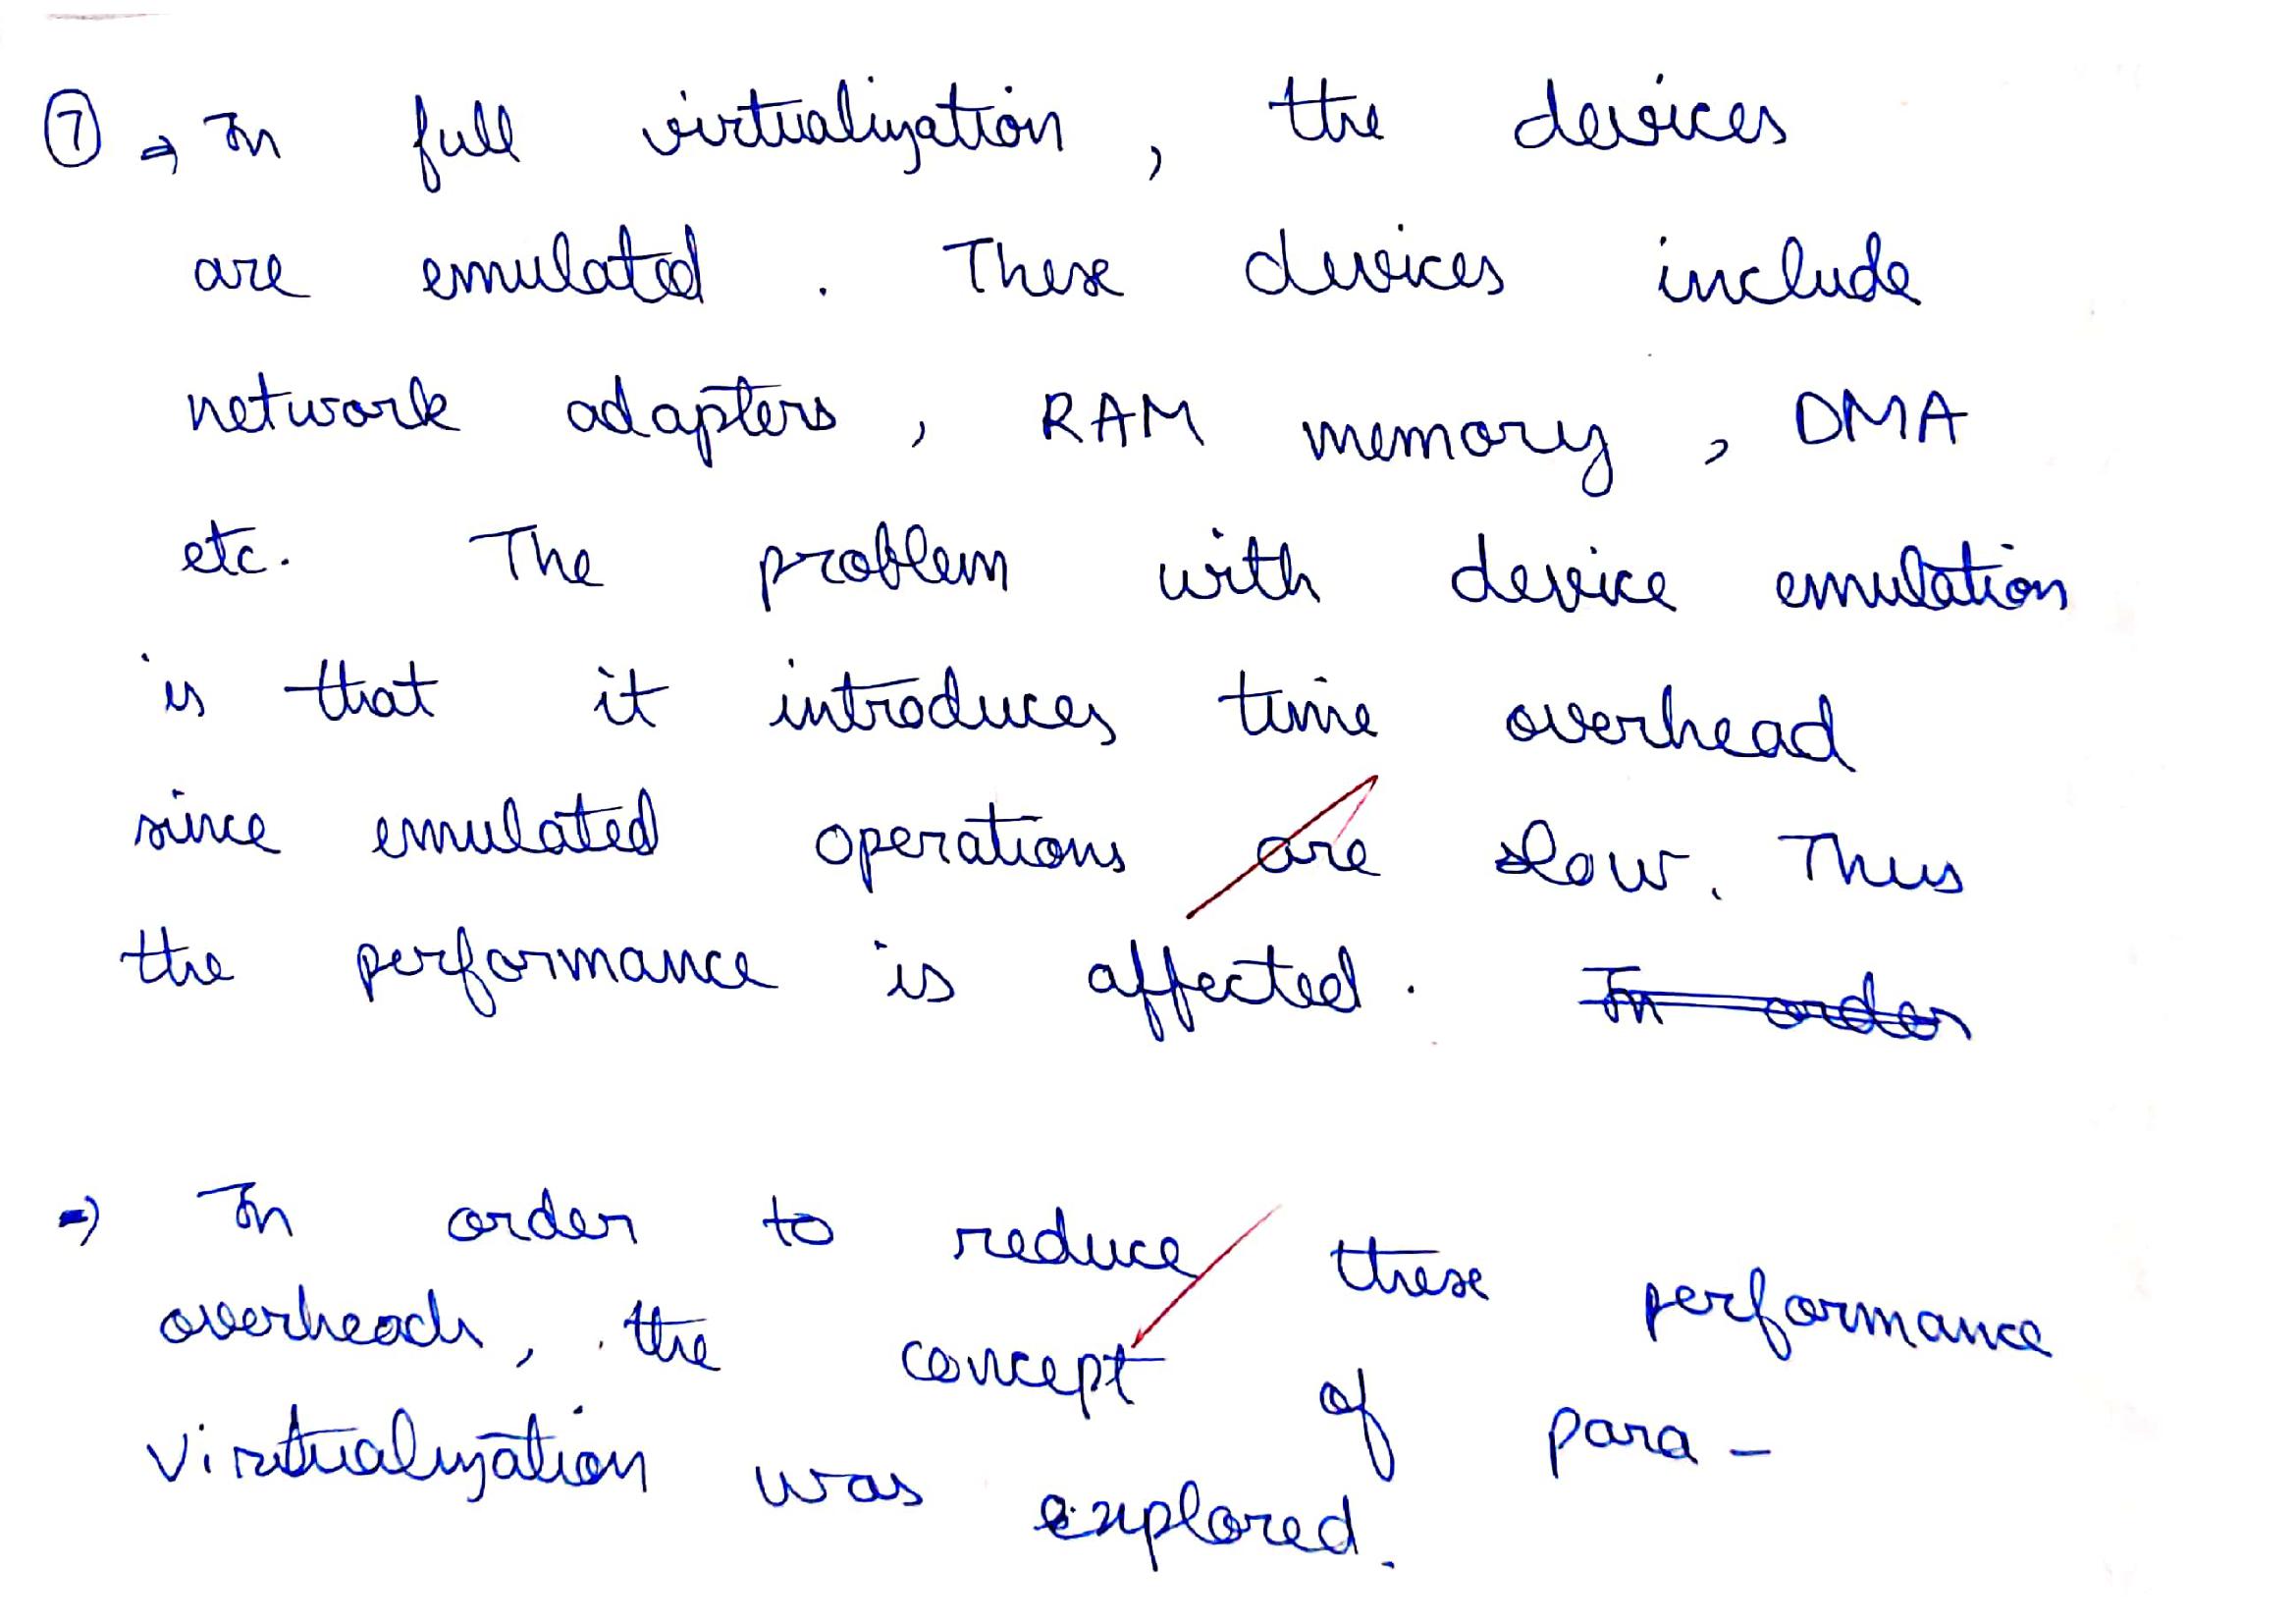 ⑦ ⇒ In full virtualization, the devices
are emulated. These devices include
network adapters, RAM memory, DMA
etc. The problem with device emulation
is that it introduces time overhead
since emulated operations are slow. Thus
the performance is affected. In order
⇒ In order to reduce these performance
overheads, the concept of para-
virtualization was explored.